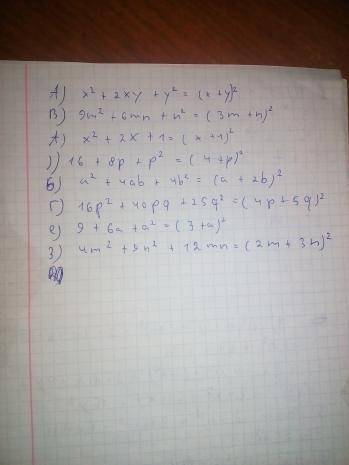 А) x² + 2xy + y² = (x+y)²
В) 9m² + 6mn + n² = (3m+n)²
А) x² + 2x + 1 = (x+1)²
)) 16 + 8p + p² = (4+p)²
Б) a² + 4ab + 4b² = (a + 2b)²
Г) 16p² + 40pq + 25q² = (4p+5q)²
е) 9 + 6a + a² = (3+a)²
З) 4m² + 9n² + 12mn = (2m + 3n)²